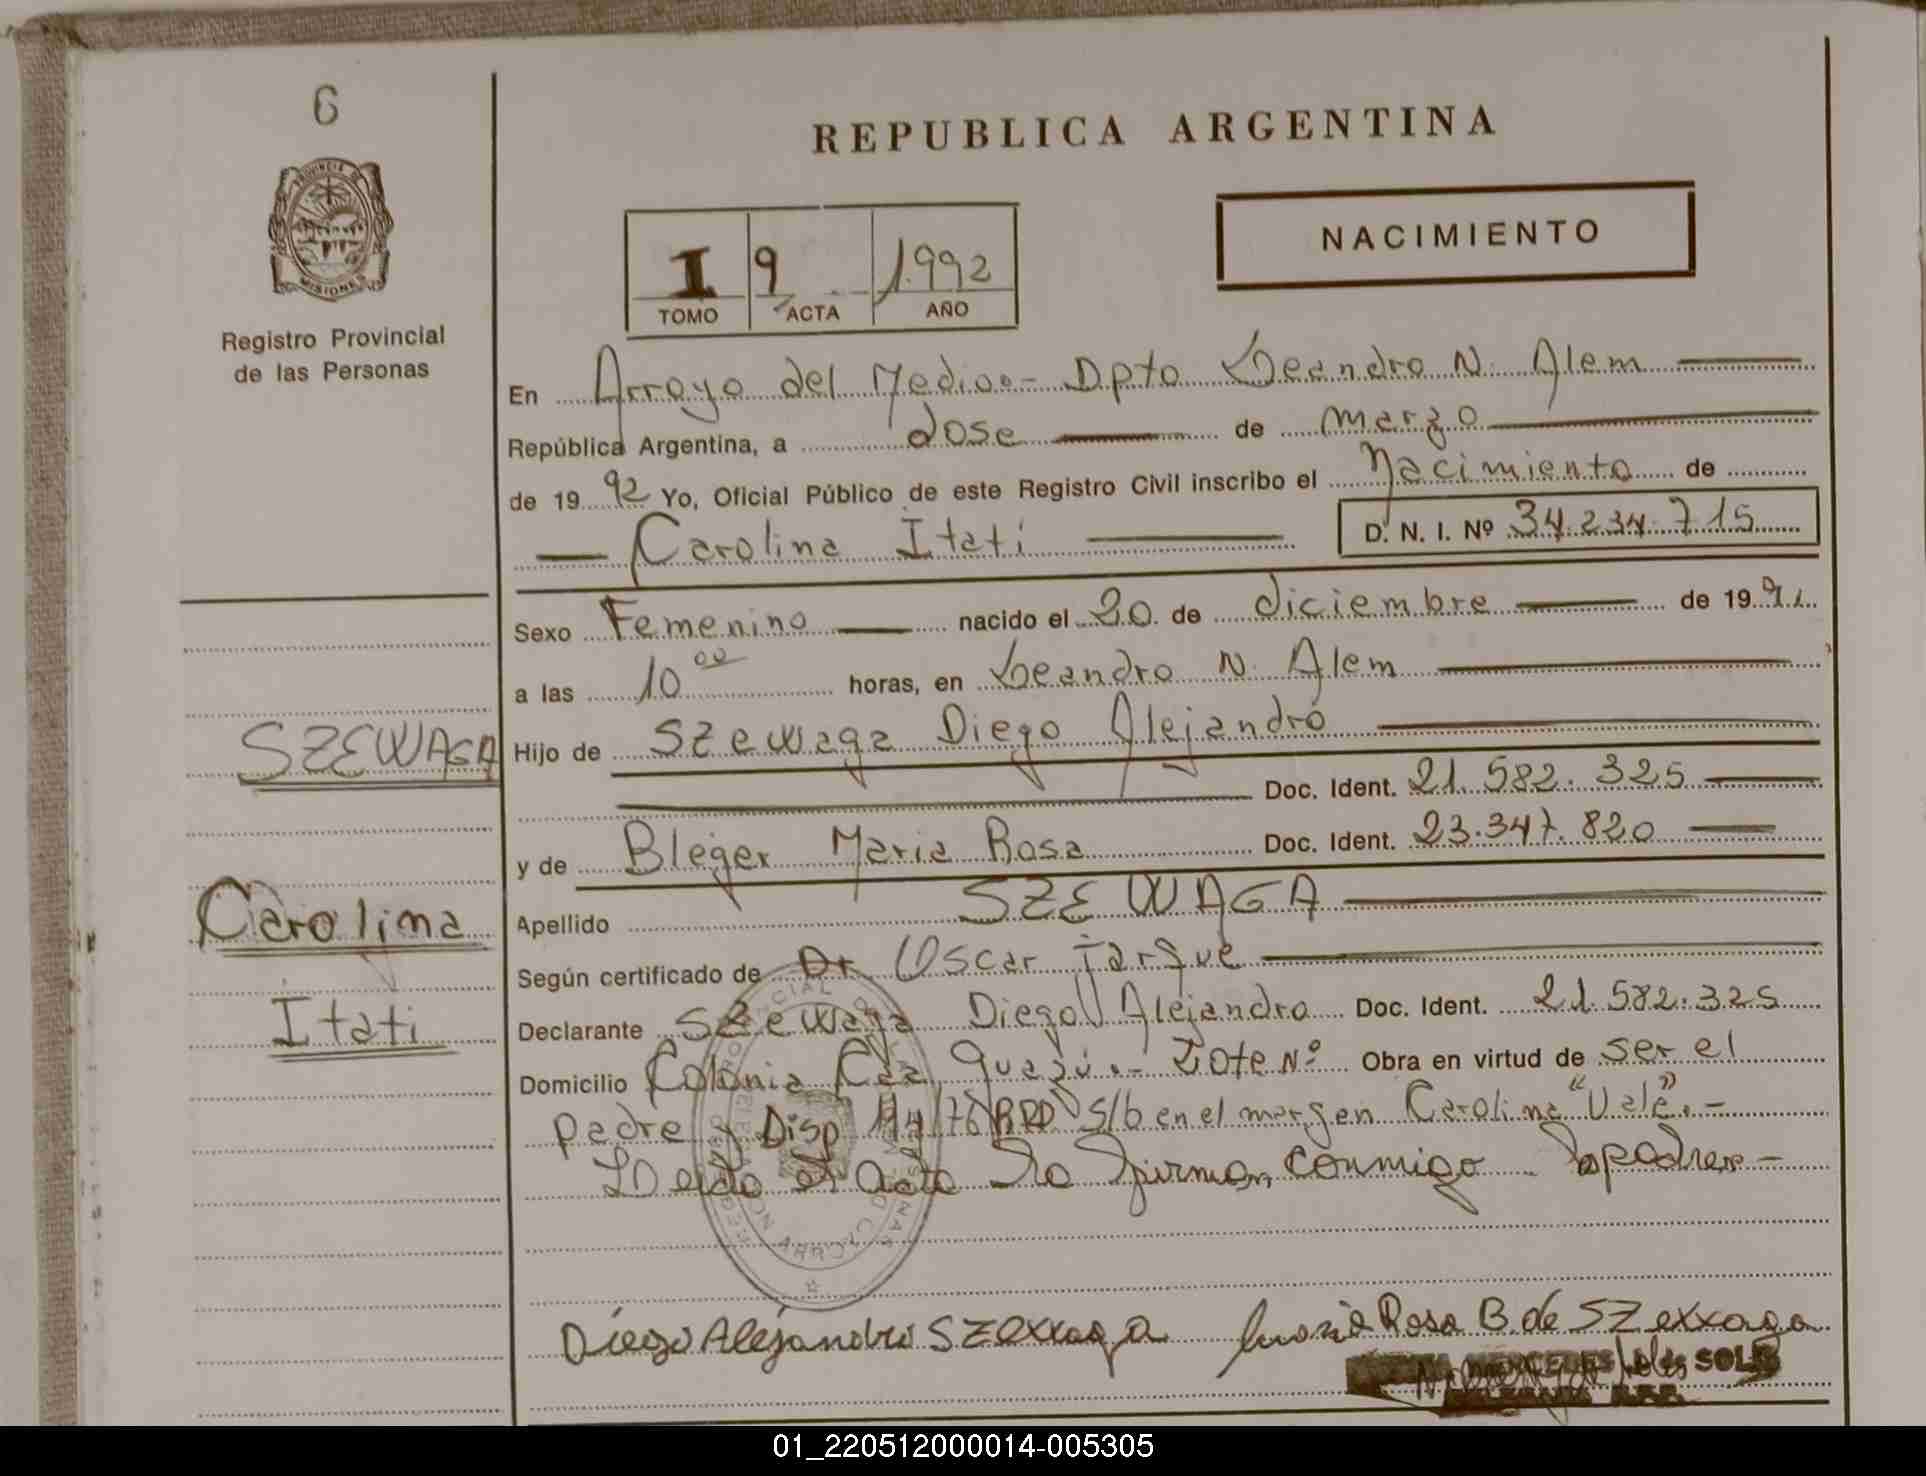 6
PROVINCIA DE
MISIONES
Registro Provincial
de las Personas
REPUBLICA ARGENTINA
NACIMIENTO
I 9 1.992
TOMO ACTA AÑO
En Arroyo del Medio.- Dpto Leandro N. Alem
República Argentina, a dose de marzo
de 19 92 Yo, Oficial Público de este Registro Civil inscribo el Nacimiento de
Carolina Itati D. N. I. Nº 34.234.715
Sexo Femenino nacido el 20 de diciembre de 19 91
a las 10 00 horas, en Leandro N. Alem
SZEWAGA
Hijo de Szewaga Diego Alejandro
Doc. Ident. 21.582.325
y de Bleger Maria Rosa Doc. Ident. 23.347.820
Carolina
Itati
Apellido SZEWAGA
Según certificado de Dr Oscar Jarque
Declarante Szewaga Diego Alejandro Doc. Ident. 21.582.325
Domicilio Colonia Caa Guazú.- Lote Nº Obra en virtud de ser el
padre y Disp 14/76 RPP S/b en el margen Carolina "Vale".-
Leido el Acta la firman conmigo los padres-
Diego Alejandro SZewaga Maria Rosa B. de SZewaga
MERCEDES SOLIS
01_220512000014-005305